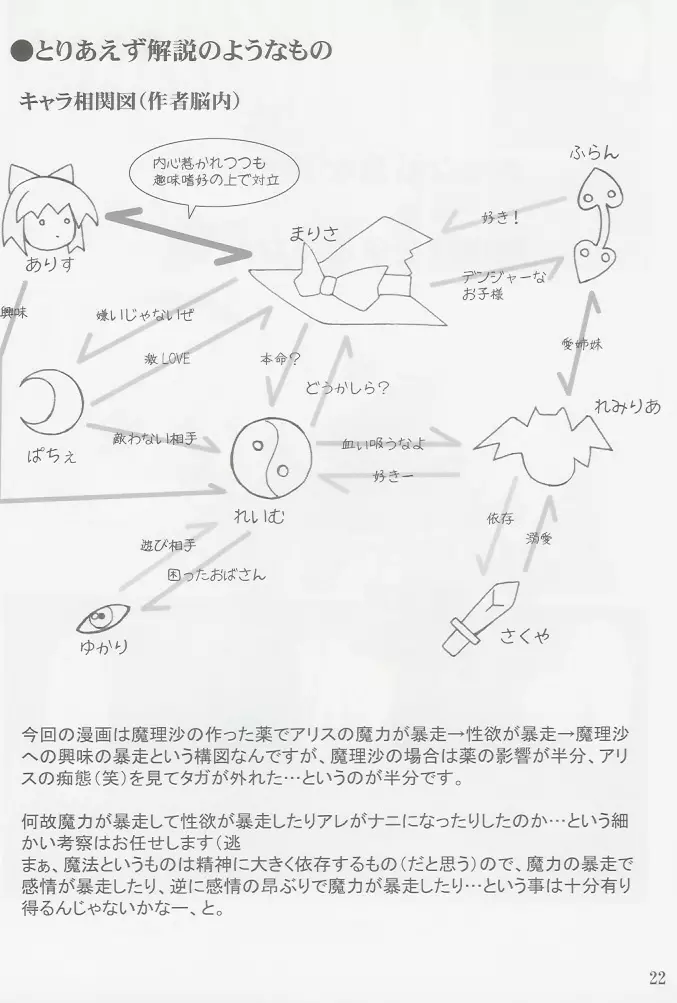 ●とりあえず解説のようなもの
キャラ相関図（作者脳内）
内心惹かれつつも
趣味嗜好の上で対立
ふらん
好き！
まりさ
ありす
デンジャーな
お子様
興味
嫌いじゃないぜ
激LOVE
本命？
どうかしら？
愛姉妹
れみりあ
敵わない相手
ぱちぇ
血ぃ吸うなよ
好きー
れいむ
依存
溺愛
遊び相手
困ったおばさん
ゆかり
さくや
今回の漫画は魔理沙の作った薬でアリスの魔力が暴走→性欲が暴走→魔理沙
への興味の暴走という構図なんですが、魔理沙の場合は薬の影響が半分、アリ
スの痴態（笑）を見てタガが外れた…というのが半分です。
何故魔力が暴走して性欲が暴走したりアレがナニになったりしたのか…という細
かい考察はお任せします（逃
まぁ、魔法というものは精神に大きく依存するもの（だと思う）ので、魔力の暴走で
感情が暴走したり、逆に感情の昂ぶりで魔力が暴走したり…という事は十分有り
得るんじゃないかなー、と。
22